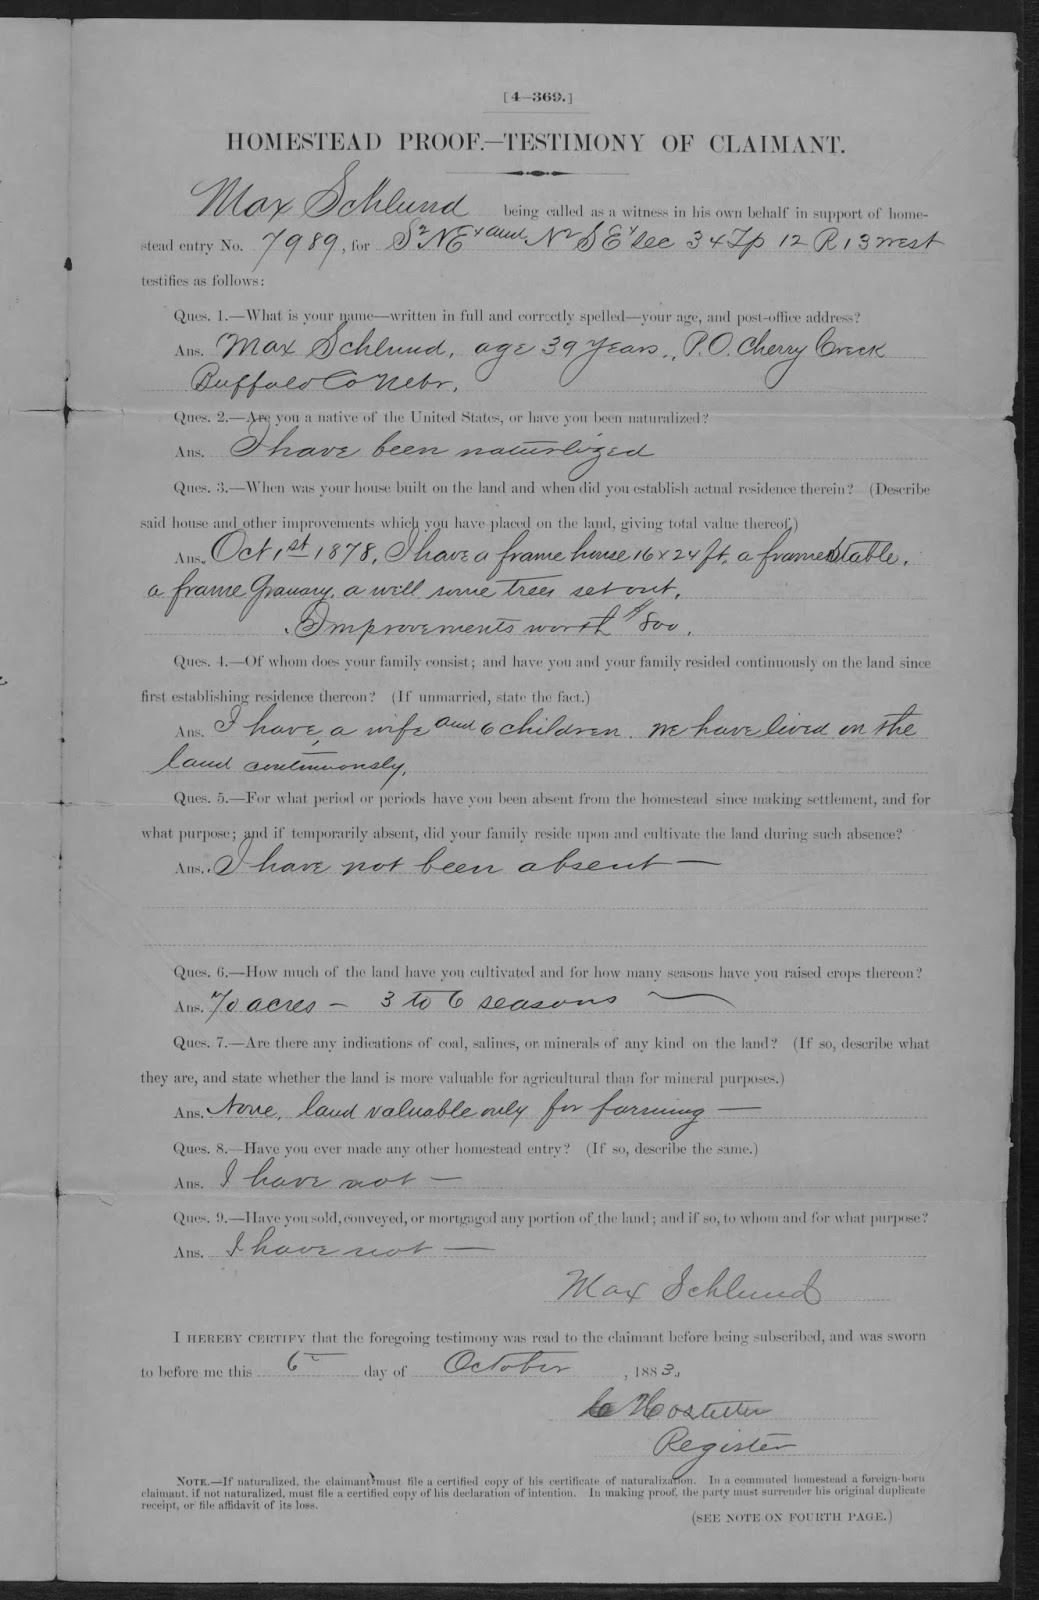 [4—369.]
HOMESTEAD PROOF.—TESTIMONY OF CLAIMANT.
Max Schlund being called as a witness in his own behalf in support of home-
stead entry No. 7989, for S2 NE4 and N2 SE4 Sec 34 Tp 12 R 13 West
testifies as follows:
Ques. 1.—What is your name—written in full and correctly spelled—your age, and post-office address?
Ans. Max Schlund, age 39 years, P.O. Cherry Creek
Buffalo Co Nebr.
Ques. 2.—Are you a native of the United States, or have you been naturalized?
Ans. I have been naturlized
Ques. 3.—When was your house built on the land and when did you establish actual residence therein? (Describe
said house and other improvements which you have placed on the land, giving total value thereof.)
Ans. Oct 1st 1878, I have a frame house 16 x 24 ft. a frame stable,
a frame Granary, a well some trees set out.
Improvements worth $800.
Ques. 4.—Of whom does your family consist; and have you and your family resided continuously on the land since
first establishing residence thereon? (If unmarried, state the fact.)
Ans. I have a wife and 6 children. we have lived on the
land continuously,
Ques. 5.—For what period or periods have you been absent from the homestead since making settlement, and for
what purpose; and if temporarily absent, did your family reside upon and cultivate the land during such absence?
Ans. I have not been absent —
Ques. 6.—How much of the land have you cultivated and for how many seasons have you raised crops thereon?
Ans. 70 acres — 3 to 6 seasons —
Ques. 7.—Are there any indications of coal, salines, or minerals of any kind on the land? (If so, describe what
they are, and state whether the land is more valuable for agricultural than for mineral purposes.)
Ans. None, land valuable only for farming —
Ques. 8.—Have you ever made any other homestead entry? (If so, describe the same.)
Ans. I have not —
Ques. 9.—Have you sold, conveyed, or mortgaged any portion of the land; and if so, to whom and for what purpose?
Ans. I have not —
Max Schlund
I HEREBY CERTIFY that the foregoing testimony was read to the claimant before being subscribed, and was sworn
to before me this 6 day of October, 1883.
C Hostetter
Register
NOTE.—If naturalized, the claimant must file a certified copy of his certificate of naturalization. In a commuted homestead a foreign-born
claimant, if not naturalized, must file a certified copy of his declaration of intention. In making proof, the party must surrender his original duplicate
receipt, or file affidavit of its loss.
(SEE NOTE ON FOURTH PAGE.)